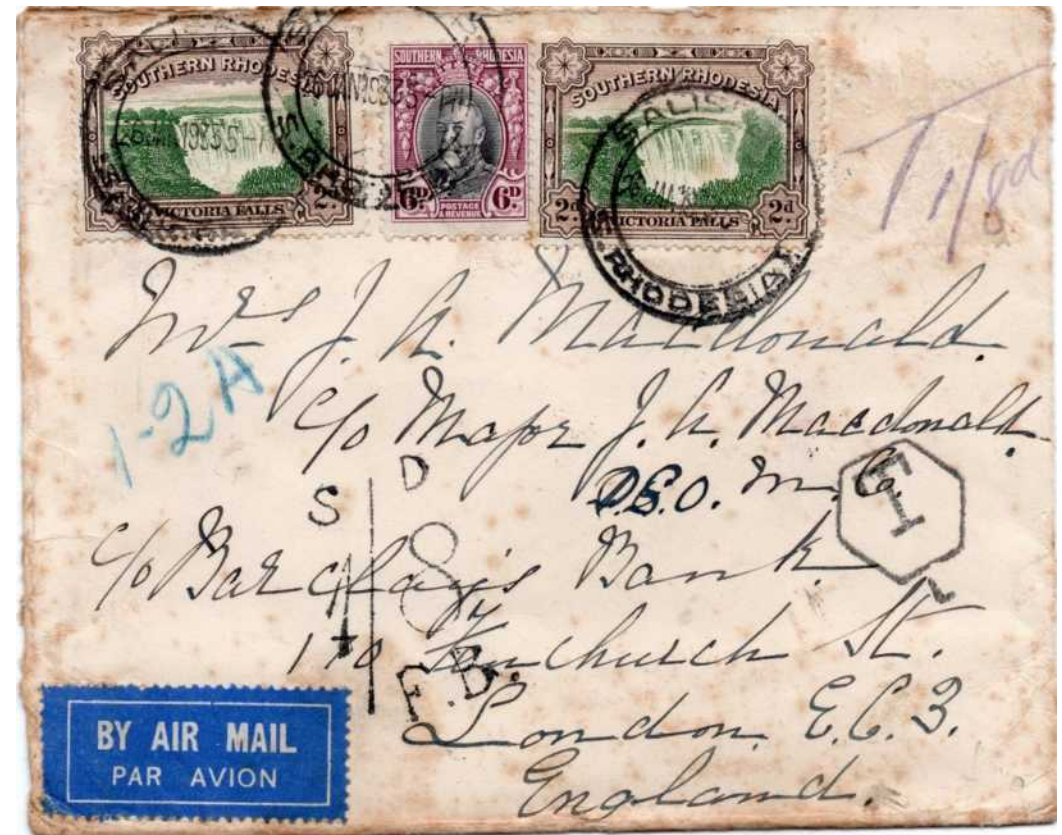 SOUTHERN RHODESIA
2d
VICTORIA FALLS
26 JAN 1933
SOUTHERN RHODESIA
6D 6D
POSTAGE
& REVENUE
26 JAN 1933 S-
SOUTHERN RHODESIA
2d 2d
VICTORIA FALLS
SALIS
S. RHODESIA
T 1/8d
Mrs J. A. Macdonald
1-2 A
c/o Major J. A. Macdonald
D.S.O. M.C.
T
L
S D
1 8
F.B.
c/o Barclays Bank
170 Fenchurch St.
London E.C.3.
England.
BY AIR MAIL
PAR AVION